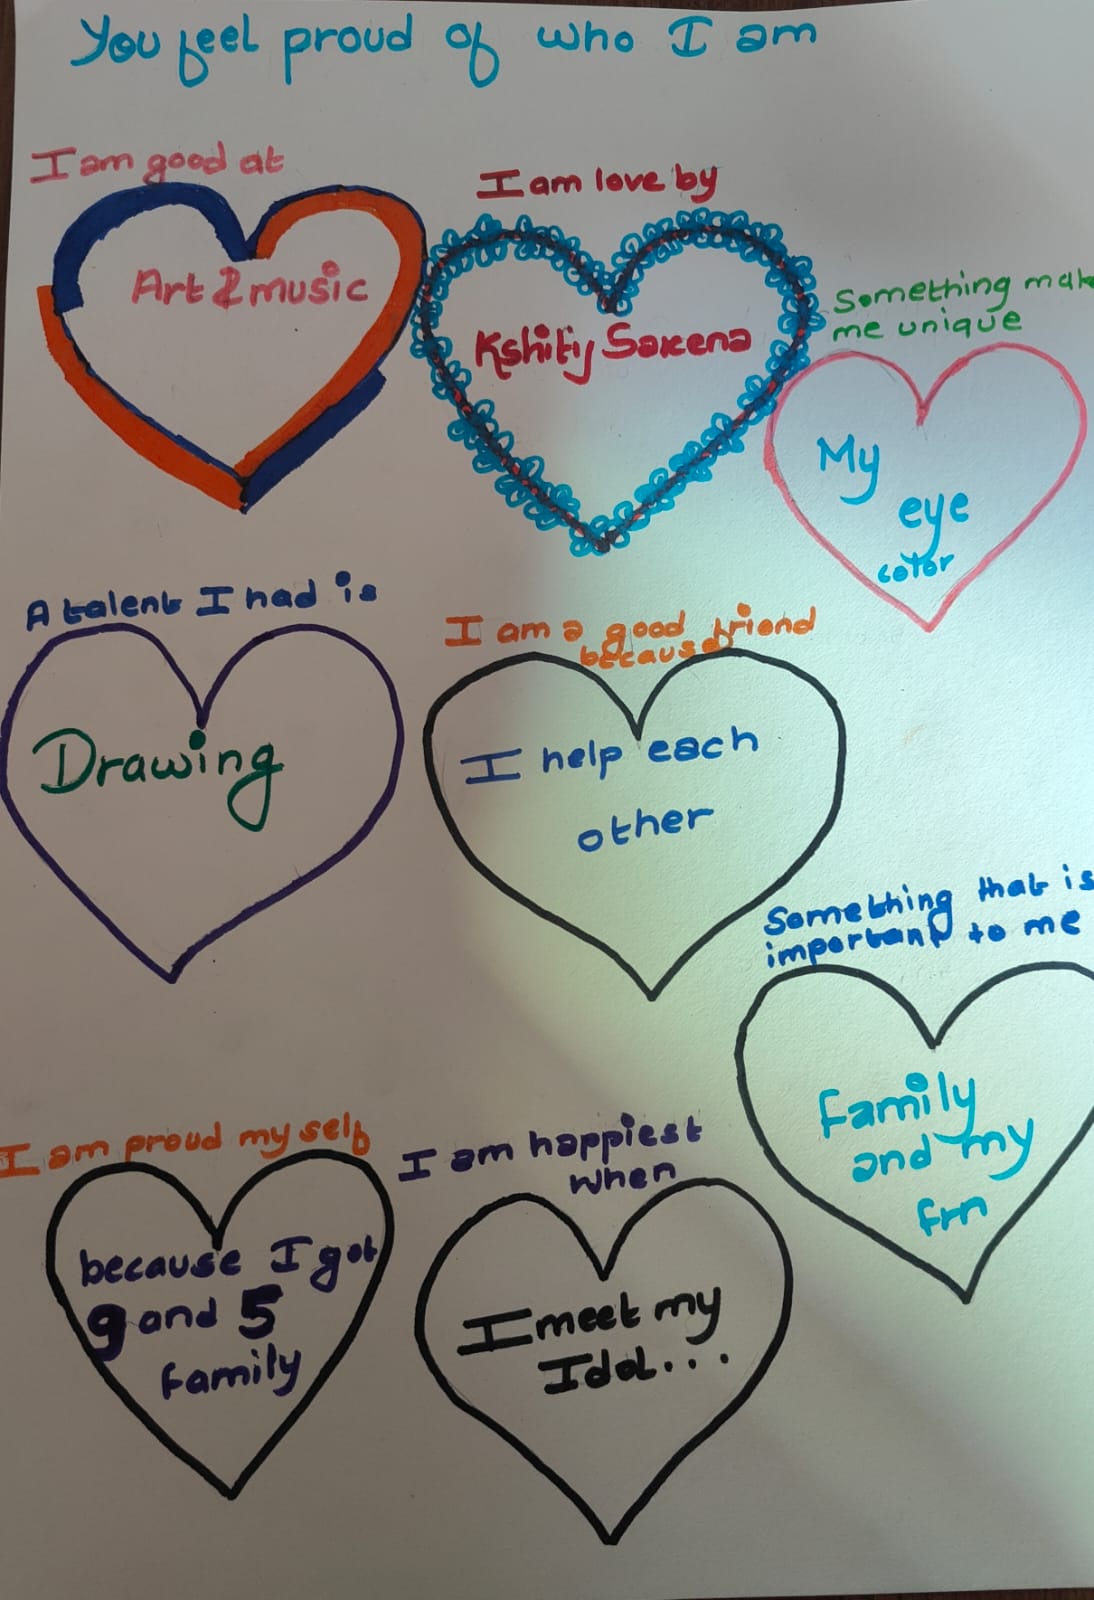 You feel proud of who I am
I am good at
Art & music
I am love by
Kshitij Saxena
Something mak
me unique
My
eye
color
A talent I had is
Drawing
I am a good friend
because
I help each
other
Something that is
important to me
Family
and my
frn
I am proud my self
because I got
9 and 5
family
I am happiest
when
I meet my
Idol...